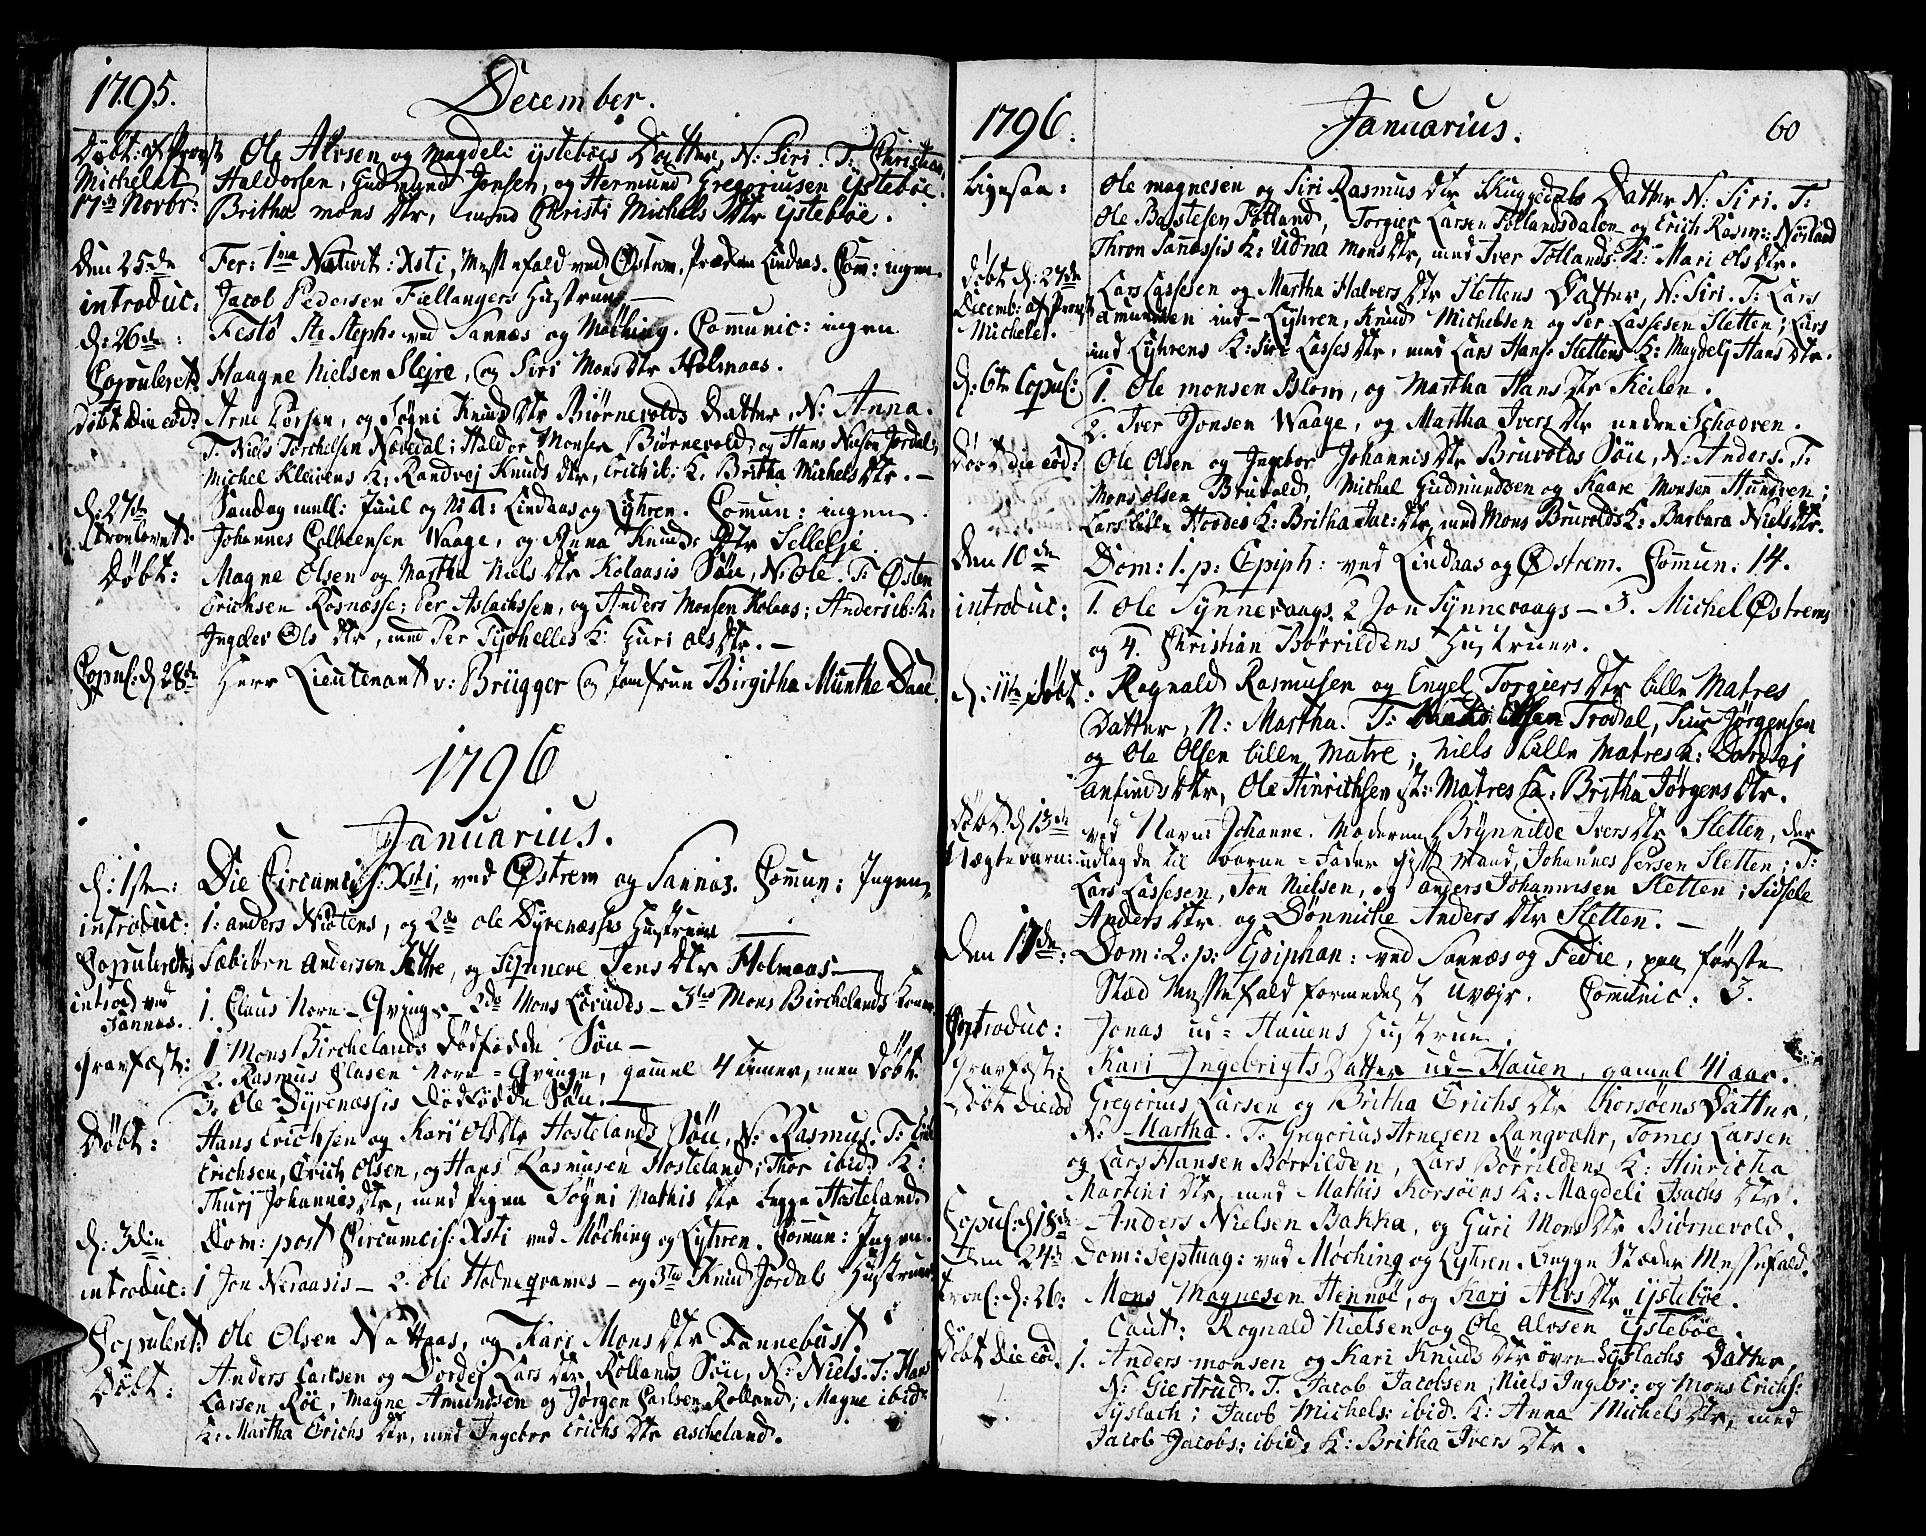 1795. December.
Döbt: af Provst Ole Alvsen og Magdeli ÿsteböes Datter, N: Siri. T: Christian
Michelet Haldorsen, Gudmund Jonsen, og Hermund Gregoriusen ÿsteböe.
17de Novbr: Britha Mons Dtr, med Christi Michels Dtr ÿsteböe.
Den 25de Fer: 1ma Nativit: Xsti, Messefald ved Östrem, Prædken Lindaas. Com̄: ingen.
introduc: Jacob Pedersen Fiellangers Hustrue —
d: 26de: Festo Sti Steph: ved Sannæs og Möching. Com̄unic: ingen
Copuleret: Haagne Nielsen Slejre, og Siri Mons Dtr Holmaas.
Döbt Die eod: Arne Persen, og Sögni Knuds Dtr Biörnevolds Datter, N: Anna.
T: Niels Torchelsen Nævdal; Haldor Monsen Biörnevold, og Hans Jordal;
Michel Kleivens K: Randvej Knuds Dtr, Erich ib: K: Britha Michels Dtr. —
d: 27de Söndag mell: Juul og N: A: Lindaas og Lyhren. Com̄un: ingen.
Trolovet: Johannes Colbeensen Waage, og Anna Knuds Dtr Sellevje
Döbt: Magne Olsen og Martha Niels Dtr Kolaasis Sön, N: Ole. T: Östen
Erichsen Rosnæsse; Per Aslachsen, og Anders Monsen Kolaas; Anders ib: K:
Ingder Ols Dtr, med Per K: Guri Ols Dtr. —
Copul: d: 28de Herr Lieutenant v: Brügger og Jomfrue Birgitha Munthe Daae.
1796
Januarius.
d: 1ste: Die Circumcis: Xsti, ved Östrem og Sannæs. Com̄un: Ingen
introduc: 1: Anders Niötens, og 2de Ole Dyrenæsses Hustruer
Copuleret: Sæbiörn Andersen Sættre, og Synneve Jens Dtr Holmaas —
introd ved 1. Claus Nore-Qvinge — 2de Mons Lövides — 3die Mons Birchelands Koner
Sannæs.
Gravfæst: 1 Mons Birchelands Dödfödde Sön —
2. Rasmus Clasen Nore-Qvinge, gammel 4 Timer, men Döbt.
3. Ole Dyrenæssis Dödfödde Sön. —
Döbt: Hans Erichsen og Kari Ols Dtr Hostelands Sön, N: Rasmus. T: Erich
Erichsen, Erich Olsen, og Hans Rasmusen Hosteland; Thor ibid: K:
Thurj Johannis Dtr, med Pigen Sögni Mathis Dtr begge Hosteland.
d: 3die Dom: post Circumcis: Xsti ved Möching og Lyhren. Com̄un: Ingen.
introduc: 1 Jon Neraasis — 2. Ole Hodneqvames — og 3die Knud Jordals Hustruer
Copuleret: Ole Olsen Nattaas, og Kari Mons Dtr Fannebust.
Döbt: Anders Carlsen og Dordej Lars Dtr Rollands Sön, N: Niels. T: Hans
Larsen Röe, Magne Amundsen og Jörgen Carlsen Rolland; Magne ibid:
K: Martha Erichs Dtr, med Ingebor Erichs Dtr Ascheland.
1796. Januarius. 60
Ole Magnesen og Siri Rasmus Dtr Skuggedals Datter N: Siri. T:
Ole Baistesen Totland, Torgier Larsen Totlandsdalen og Erich Rasm: Nöstland
Thron Sanæssis K: Udna Mons Dtr, med Iver Totlands K: Mari Ols Dtr.
Döbt d: 27de Lars Lassesen og Martha Halvers Dtr Slettens Datter, N: Siri. T: Lars
Decemb: af Provst Amundsen ind-Lyhren, Knud Michelsen og Per Lassesen Sletten; Lars
Michelet. ind Lyhrens K: Siri Lasses Dtr, med Lars Hans: Slettens K: Magdelj Hans Dtr.
d: 6te Copul: 1. Ole Monsen Blom, og Martha Hans Dtr Keilen.
2. Iver Jonsen Waage, og Martha Ivers Dtr nedre Schodven.
Döbt die eod: Ole Olsen og Ingebor Johannis Dtr Bruvolds Sön, N: Anders. T:
Mons Olsen Bruvold, Michel Gudmundsen og Kaare Monsen Hundven;
Lars lille Hovdes K: Britha Jac: Dtr, med Mons Bruvolds K: Barbara Niels Dtr.
Den 10de Dom: 1. p: Epiph: ved Lindaas og Östrem. Com̄un: 14.
introduc: 1. Ole Synnevaags, 2 Jon Synnevaags — 3. Michel Östrems
og 4. Christian Börrildens Hustruer.
d: 11te Döbt: Rognald Rasmusen og Engel Torgiers Dtr lille Matres
Datter, N: Martha. T: Trodal, Jörgensen
og Ole Olsen lille Matre; Niels lille Matres K: Dordej
Anfinds Dtr, Ole Hinrichsen St: Matres K: Britha Jörgens Dtr.
Döbt d: 13de ved Navn: Johanne. Moderen Brynnilde Ivers Dtr Sletten, der
Uægte barn: udlagde til Barne-Fader gift Mand, Johannes Persen Sletten; T:
Lars Lassesen, Jon Nielsen, og Anders Johannesen Sletten; Sidsele
Anders Dtr og Dönniche Anders Dtr Sletten. —
Den 17de: Dom: 2. p: Epiphan: ved Sannæs og Fedie, paa förste
Stæd Messefald formedelst Uvejr. Com̄unic: 3.
introduc: Jonas ud-Hauens Hustrue.
Gravfæst: Kari Ingebrigts Datter ud-Hauen, gamel 41 aar.
Döbt Die eod Gregorius Larsen og Britha Erichs Dtr Korsöens Datter,
N: Martha. T: Gregorius Arnesen Rangvæhr, Tomes Larsen
og Lars Hansen Börrilden, Lars Börrildens K: Hinricha
Martini Dtr, med Mathis Korsöens K: Magdeli Isachs Dtr.
Copul: d: 18de Anders Nielsen Bakka, og Guri Mons Dtr Biörnevold.
Den 24de Dom: Septuag: ved Möching og Lyhren, begge Stæder Messefald.
Trol: d: 26: Mons Magnesen Hennöe, og Kari Alvs Dtr ÿsteböe.
Caut: Rognald Nielsen og Ole Alvsen ÿsteböe.
Döbt Die eod. 1. Anders Monsen og Kari Knuds Dtr övre Syslachs Datter,
N: Giertrud. T. Jacob Jacobsen, Niels Ingebr: og Mons Erichs:
Syslach; Jacob Michels: ibid. K: Anna Michels Dtr, med
Jacob Jacobs: ibid: K: Britha Ivers Dtr.